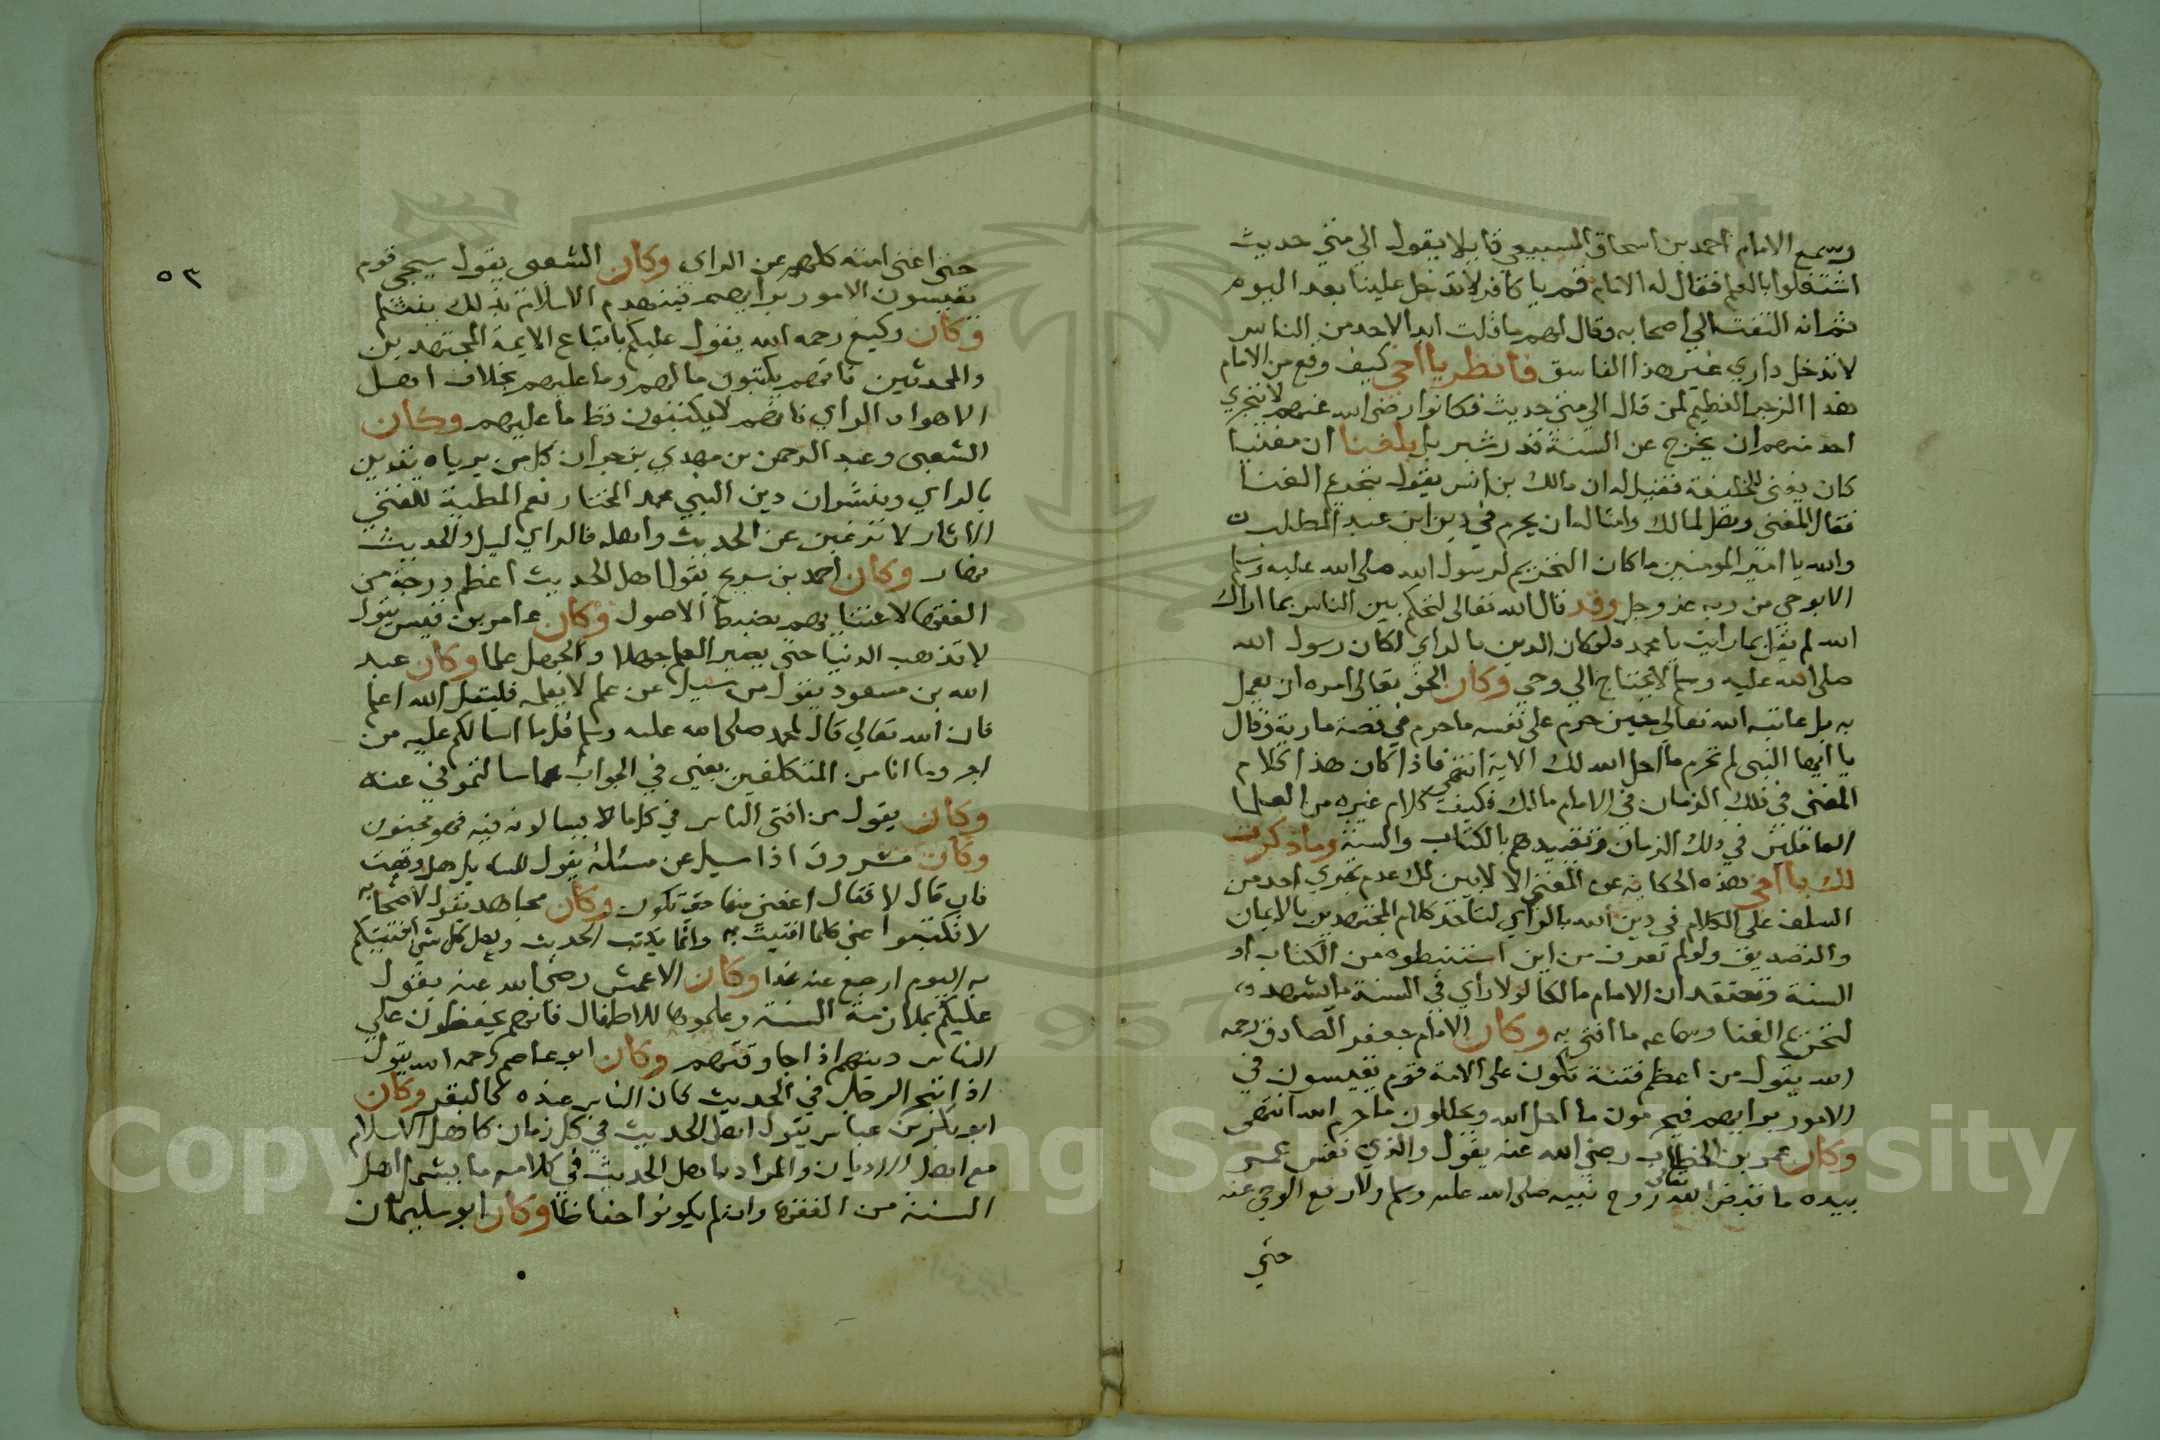 وسمع الامام احمد بن اسحاق السبيعي قايلا يقول الي متي حديث
اشتغلوا بالعلم فقال له الامام قم يا كافر لا تدخل علينا بعد اليوم
ثم انه التفت الي اصحابه وقال لهم ما قلت ابدا لاحد من الناس
لا تدخل داري غير هذا الفاسق فانظر يا اخي كيف وقع من الامام
هذا الزجر العظيم لمن قال الي متي حديث فكانوا رضي الله عنهم لا يتجري
احد منهم ان يخرج عن السنة قدر شبر بل بلغنا ان مغنيا
كان يغني للخليفة فقيل له ان مالك بن انس يقول بتحريم الغنا
فقال المغني وهل لمالك وامثاله ان يحرم في دين ابن عبد المطلب
والله يا امير المومنين ما كان التحريم لرسول الله صلي الله عليه وسلم
الا بوحي من ربه عز وجل وقد قال الله تعالي لتحكم بين الناس بما اراك
الله لم يقل بما رايت يا محمد ولو كان الدين بالراي لكان رسول الله
صلي الله عليه وسلم لا يحتاج الي وحي وكان الحق تعالي امره ان يعمل
به بل عاتبه الله تعالي حين حرم علي نفسه ما حرم في قصة مارية وقال
يا ايها النبي لم تحرم ما احل الله لك الاية انتهي فاذا كان هذا كلام
المغني في ذلك الزمان في الامام مالك فكيف كلام غيره من العلما
العاقلين في ذلك الزمان وتقييدهم بالكتاب والسنة وما ذكرت
لك يا اخي هذه الحكاية عن المغني الا لابين لك عدم تجري احد من
السلف علي الكلام في دين الله بالراي لتاخذ كلام المجتهدين بالايمان
والتصديق ولو لم تعرف من اين استنبطوه من الكتاب او
السنة وتعتقد ان الامام مالكا لولا راي في السنة ما يشهد
لتحريم الغنا وسماعه ما افتي به وكان الامام جعفر الصادق رحمه
الله يقول من اعظم فتنة تكون علي الامة قوم يقيسون في
الامور برايهم فيحرمون ما احل الله ويحللون ما حرم الله انتهي
وكان عمر بن الخطاب رضي الله عنه يقول والذي نفس عمر
بيده ما قبض الله تعالي روح نبيه صلي الله عليه وسلم ولا رفع الوحي عنه
حتي
٥٣
حتي اغني امته كلهم عن الراي وكان الشعبي يقول سيجي قوم
يقيسون الامور برايهم فينهدم الاسلام بذلك وينثلم
وكان وكيع رحمه الله يقول عليكم باتباع الايمة المجتهدين
والمحدثين فانهم يكتبون مالهم وما عليهم بخلاف اهل
الاهواء الراي فانهم لا يكتبون قط ما عليهم وكان
الشعبي وعبد الرحمن بن مهدي يزجران كل من يرياه يتدين
بالراي وينشدان دين النبي محمد المختار نعم المطية للفتي
الاثار لا ترغبن عن الحديث واهله فالراي ليل والحديث
نهار وكان احمد بن سريج يقول اهل الحديث اعظم درجة من
الفقها لاعتنايهم بضبط الاصول وكان عامر بن قيس يقول
لا تذهب الدنيا حتي يصير العلم جهلا والجهل علما وكان عبد
الله بن مسعود يقول من سيل عن علم لا يعلمه فليقل الله اعلم
فان الله تعالي قال لمحمد صلي الله عليه وسلم قل ما اسالكم عليه من
اجر وما انا من المتكلفين يعني في الجواب عما سالتموني عنه
وكان يقول من افتي الناس في كل ما يسالونه فيه فهو مجنون
وكان مسروق اذا سيل عن مسئلة يقول للسايل هل وقعت
فان قال لا فقال اعفني منها حتي تكون وكان مجاهد يقول لاصحابه
لا تكتبوا عني كلما افتيت به وانما يكتب الحديث ولعل كل شي افتيتكم
به اليوم ارجع عنه غدا وكان الاعمش رضي الله عنه يقول
عليكم بملازمة السنة وعلموها للاطفال فانهم يحفظون علي
الناس دينهم اذا جا وقتهم وكان ابو عاصم رحمه الله يقول
اذا تبحر الرجل في الحديث كان الناس عنده كالبقر وكان
ابو بكر بن عياش يقول اهل الحديث في كل زمان كاهل الاسلام
مع اهل الاديان والمراد باهل الحديث في كلامه ما يشمل اهل
السنة من الفقها وان لم يكونوا حفاظا وكان ابو سليمان
Copyright © King Saud University
1957